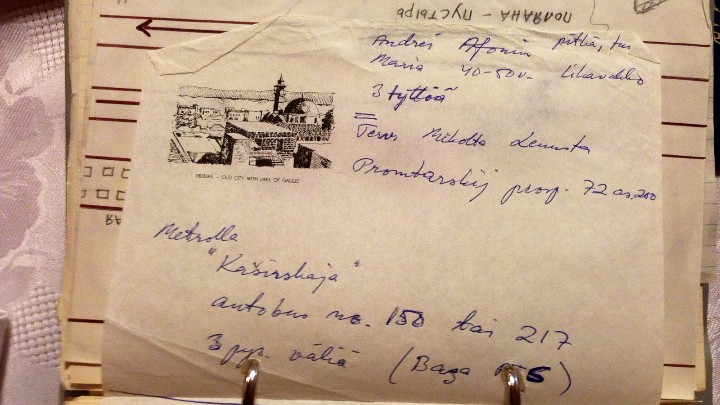 ПОЛЯНА - ПУСТЫРЬ
Andrei Afonin pitkä, tu
Maria 40-50v.
3 tyttöä
Terv.
Promtarskij prosp. 72 as. 200
TIBERIAS - OLD CITY WITH LAKE OF GALILEE
Metrolla
"Kaširskaja"
autobus no. 150 tai 217
3 pys. väliä (Baza 6)